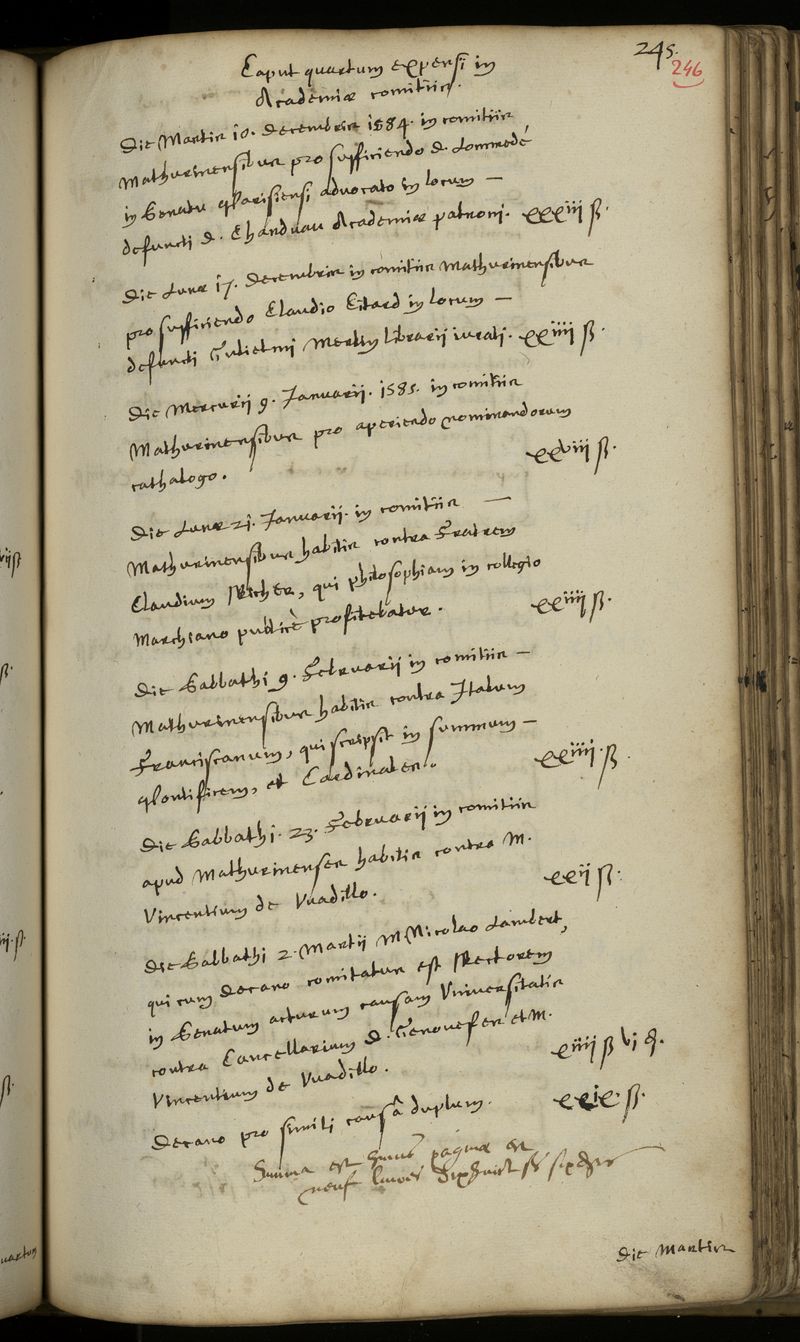 245.
246
Caput quartum expensi in
Academiæ comitiis.
Die Martis 10. Decembris 1584. in comitiis
Mathurinensibus pro sufficiendo D. Lommedé
in Senatu Parisiensi advocato in locum —
defuncti D. Chanduau Academiæ patroni. xxxiii ß.
Die Lunæ 17. Decembris in comitiis Mathurinensibus
pro sufficiendo Claudio Citard in locum —
defuncti Gulielmi Merlin librarii iurati. xxiiii ß.
Die Mercurii 9. Januarii. 1585. in comitiis
Mathurinensibus pro aperiendo nominandorum
cathalogo. xxviii ß.
Die Lunæ 21. Januarii. in comitiis —
Mathurinensibus habitis contra Fratrem
Claudium Richer, qui philosophiam in collegio
Marchiano publicè profitebatur. xxiiii ß.
Die Sabbathi 9. Februarii in comitiis —
Mathurinensibus habitis contra Italum
Franciscanum, qui scripsit in summum —
Pontificem, et Cardinales. xxiiii ß.
Die Sabbathi. 23. Februarii in comitiis
apud Mathurinenses habitis contra M.
Vincentium de Vuadillo. xxii ß.
Die Sabbathi 2. Martii M Nicolao Lambert,
qui cum Decano comitatus est Rectorem
in Senatum acturum causam Vniversitatis
contra Cancellarium D. Genouefes et M.
Vincentium de Vuadillo. xiiii ß vi d.
Decano pro simili causâ duplum. xxix ß.
Summa paginæ est
neuf livres dixhuict ß six
Die Martis